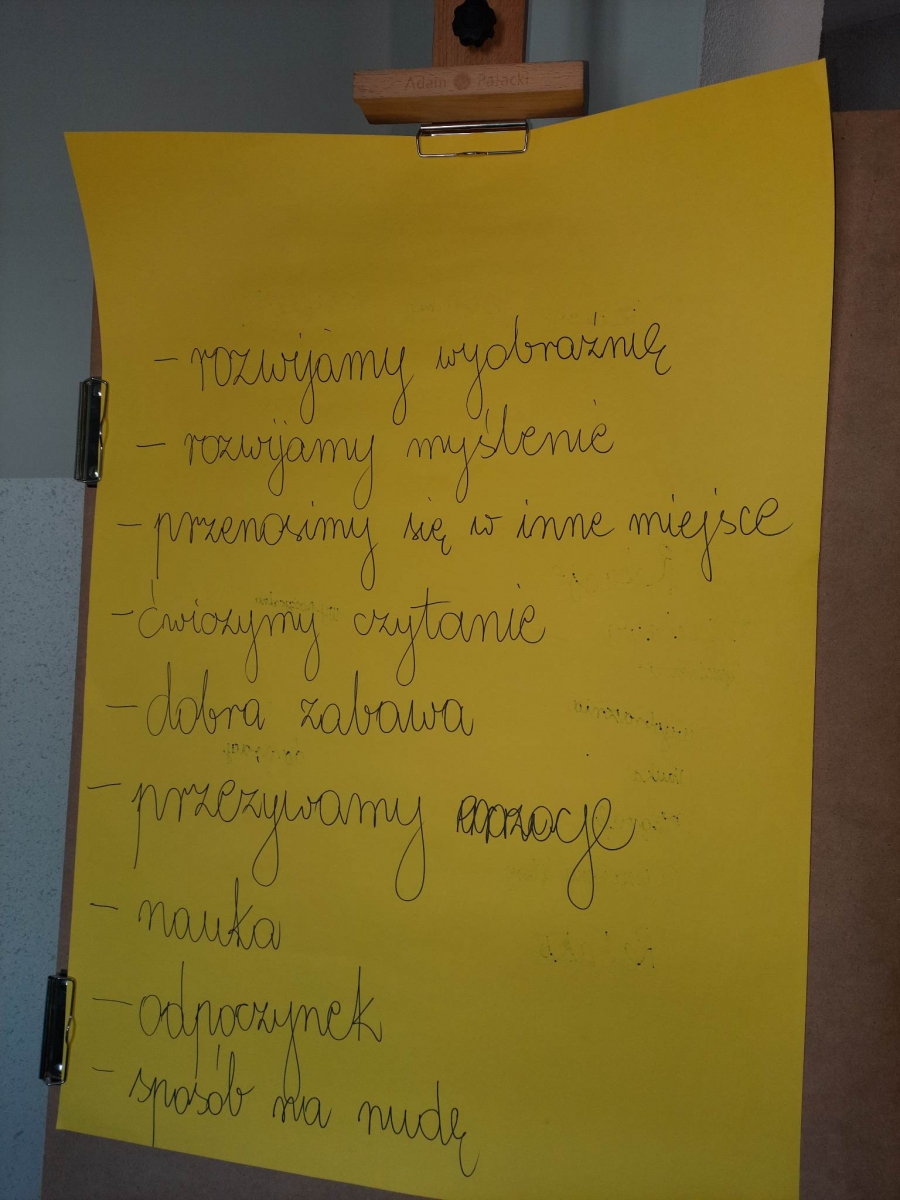 Adam Pałacki
- rozwijamy wyobraźnię
- rozwijamy myślenie
- przenosimy się w inne miejsce
- ćwiczymy czytanie
- dobra zabawa
- przezywamy
- nauka
- odpoczynek
- sposób na nudę